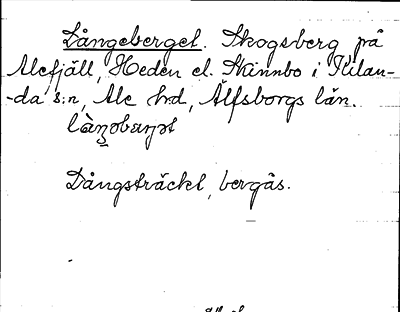 Långeberget. Skogsberg på
Alefjäll, Heden el. Skinnbo i Kilan-
-da s:n, Ale hrd, Älfsborgs län.
Långsträckt, bergås.